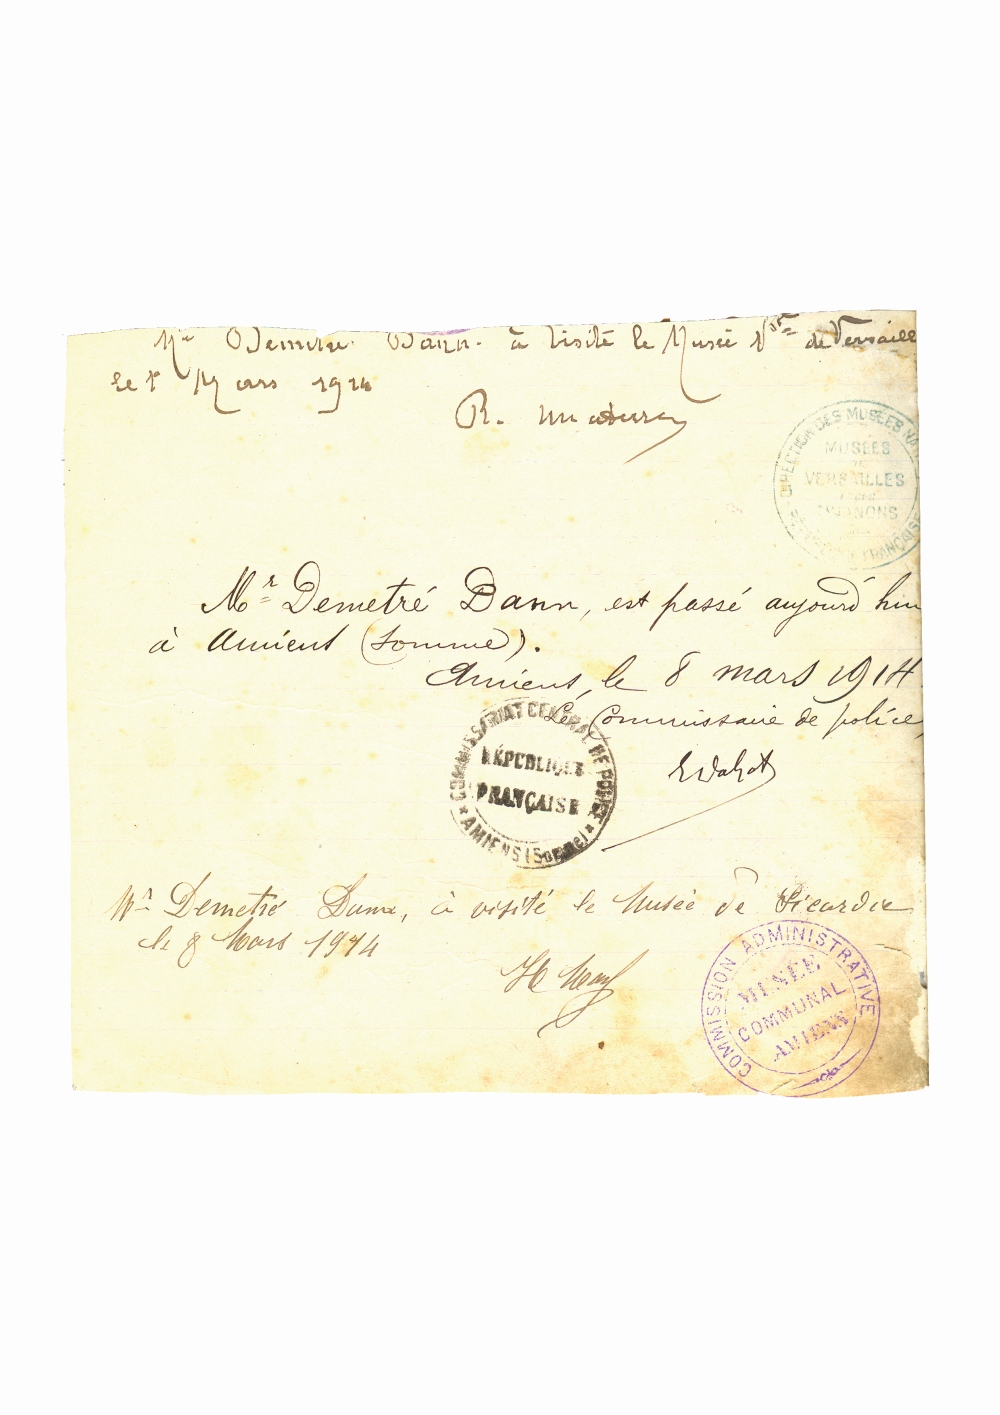 Mr Demetre Dann. à visité le Musée de Versaille
le Mars 1914
R.
DIRECTION DES MUSÉES
MUSÉES
DE
VERSAILLES
ET DES
TRIANONS
FRANÇAISE
Mr Demetré Dann, est passé aujourd'hui
à Amiens (Somme).
Amiens, le 8 mars 1914
Le Commissaire de police,
COMMISSARIAT CENTRAL DE POLICE
RÉPUBLIQUE
FRANÇAISE
* AMIENS (Somme) *
Mr Demetré Dann, à visité le Musée de Picardie
le 8 Mars 1914
COMMISSION ADMINISTRATIVE
MUSÉE
COMMUNAL
AMIENS